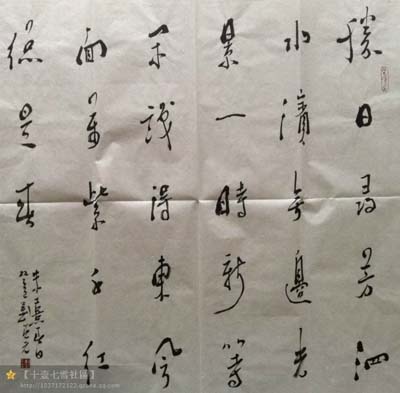 勝日尋芳泗
水濱無邊光
景一時新等
閑識得東風
面萬紫千紅
總是春
朱熹春日
【十壹七雪社區】
http://1037172122.qzone.qq.com